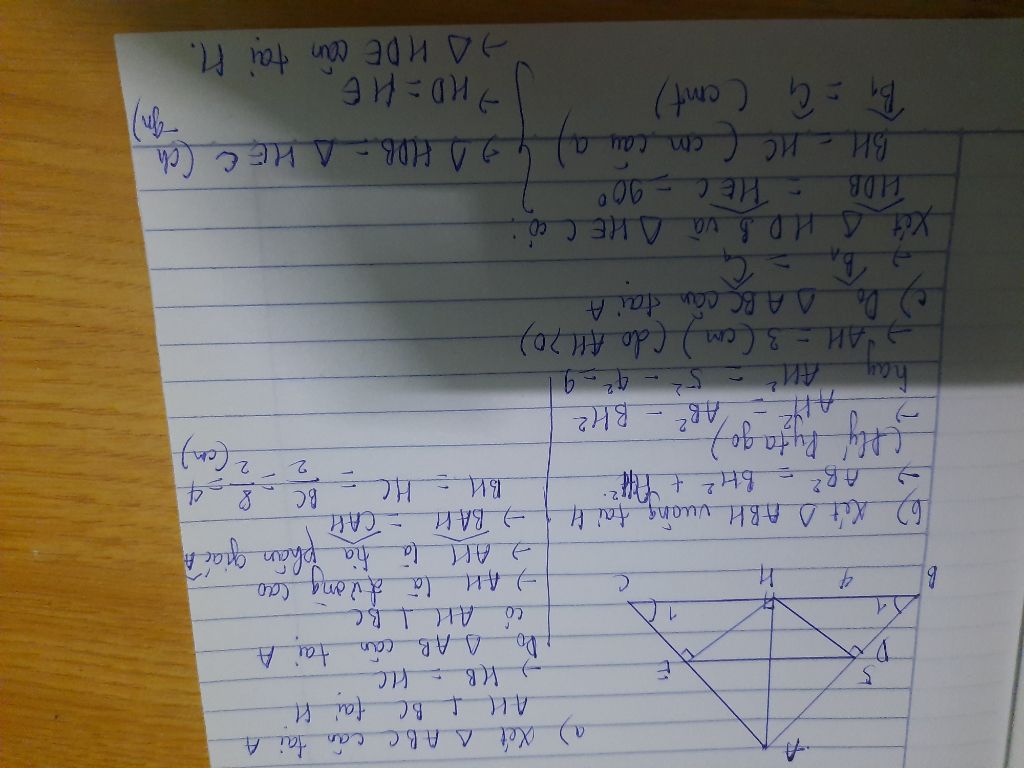 A
D
5
E
B
1
4
H
1
C
a) Xét Δ ABC cân tại A
AH ⊥ BC tại H
→ HB = HC
Do Δ AB cân tại A
có AH ⊥ BC
→ AH là đường cao
→ AH là tia phân giác Â
→ BAH = CAH
BH = HC = BC/2 = 8/2 = 4 (cm)
b) Xét Δ ABH vuông tại H
→ AB² = BH² + AH²
(Đlý Pytago)
→ AH² = AB² - BH²
hay AH² = 5² - 4² = 9
→ AH = 3 (cm) (do AH > 0)
c) Do Δ ABC cân tại A
→ B₁ = C₁
Xét Δ HDB và Δ HEC có:
HDB = HEC = 90°
BH = HC (cm câu a)
B₁ = C₁ (cmt)
→ Δ HDB = Δ HEC (ch-gn)
→ HD = HE
→ Δ HDE cân tại H.